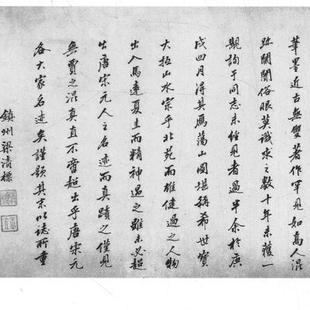 筆墨近古無雙著作罕見如高人混
跡闤闠俗眼莫識求之數十年未獲一
覩詢于同志未經見者過半余於庚
戌四月得其鴈蕩山圖堪稱希世寶
大抵山水宗乎北苑而雄健過之人物
出入馬遠夏圭而精神過之雖未必超
出唐宋元人之名迹而真蹟之僅見
無賈之混真直不啻超出乎唐宋元
各大家名迹矣謹題其末以誌所重
鎮州梁清標